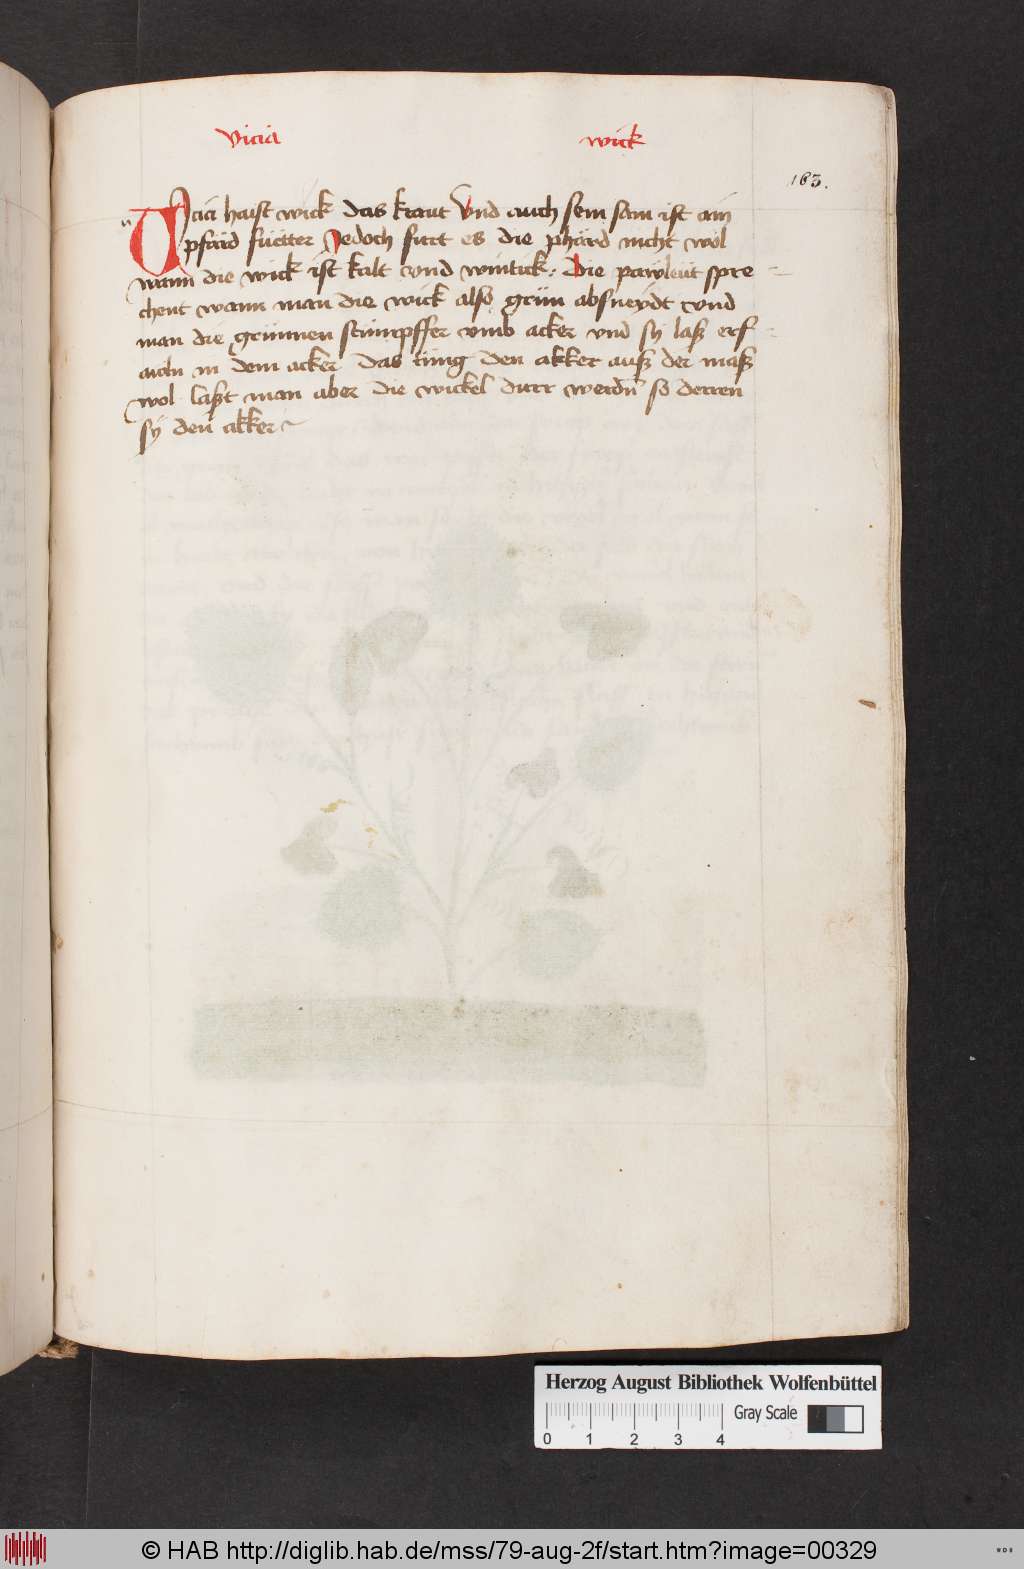 Vicia wick
163.
Vicia haist wick das kraut Vnd auch sein sam ist ain
pfärd fůtter Jedoch furt es die phärd nicht wol
wann die wick ist kalt vnd wintick. Die pawleut spre
chent wann man die wick also grün absneydt vnd
man die grünnen stümpffer vmb acker vnd sy lasz erf
awln in dem acker das tüng den akker ausz der masz
wol laszt man aber die wickel durr werdn so derren
sy den akker
Herzog August Bibliothek Wolfenbüttel
Gray Scale
0 1 2 3 4
© HAB http://diglib.hab.de/mss/79-aug-2f/start.htm?image=00329